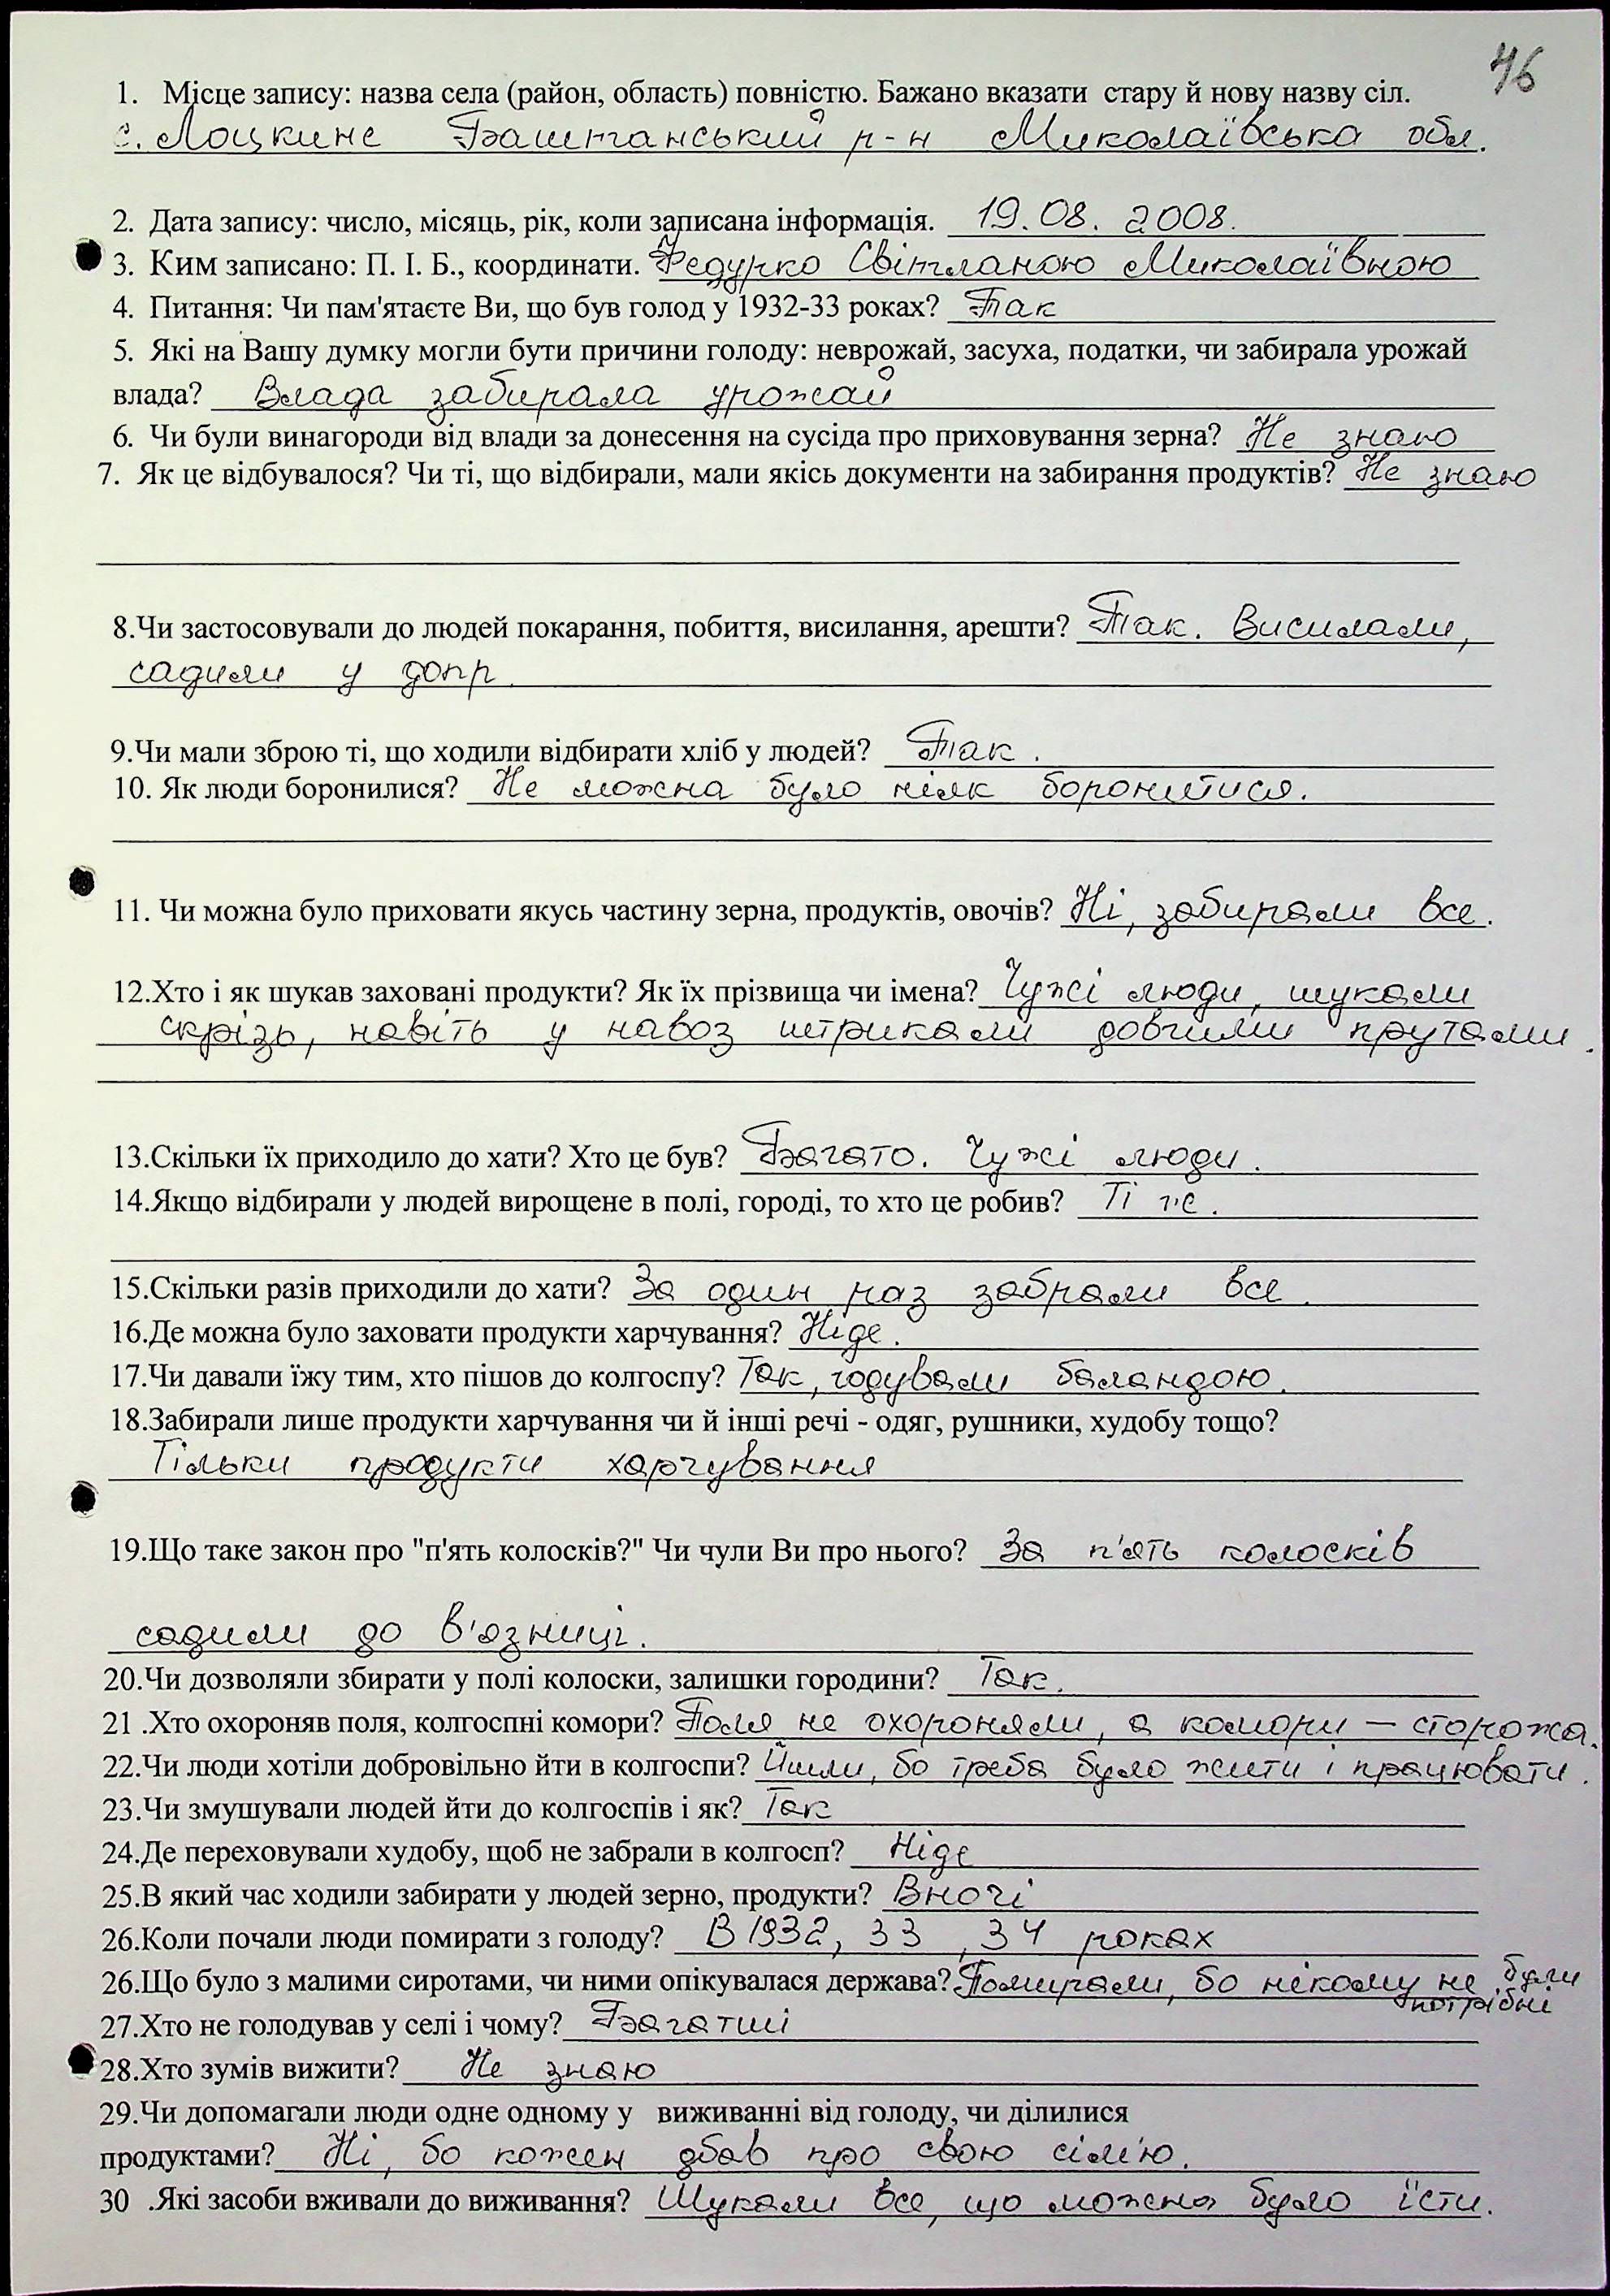 46
1. Місце запису: назва села (район, область) повністю. Бажано вказати стару й нову назву сіл.
с. Лоцкине Баштанський р-н Миколаївська обл.
2. Дата запису: число, місяць, рік, коли записана інформація. 19.08.2008.
3. Ким записано: П. І. Б., координати. Федурко Світланою Миколаївною
4. Питання: Чи пам'ятаєте Ви, що був голод у 1932-33 роках? Так
5. Які на Вашу думку могли бути причини голоду: неврожай, засуха, податки, чи забирала урожай
влада? Влада забирала урожай
6. Чи були винагороди від влади за донесення на сусіда про приховування зерна? Не знаю
7. Як це відбувалося? Чи ті, що відбирали, мали якісь документи на забирання продуктів? Не знаю
8.Чи застосовували до людей покарання, побиття, висилання, арешти? Так. Висилали,
садили у допр.
9.Чи мали зброю ті, що ходили відбирати хліб у людей? Так.
10. Як люди боронилися? Не можна було ніяк боронитися.
11. Чи можна було приховати якусь частину зерна, продуктів, овочів? Ні, забирали все.
12.Хто і як шукав заховані продукти? Як їх прізвища чи імена? Чужі люди, шукали
скрізь, навіть у навоз штрикали довгими прутами.
13.Скільки їх приходило до хати? Хто це був? Багато. Чужі люди.
14.Якщо відбирали у людей вирощене в полі, городі, то хто це робив? Ті ж.
15.Скільки разів приходили до хати? За один раз забрали все.
16.Де можна було заховати продукти харчування? Ніде.
17.Чи давали їжу тим, хто пішов до колгоспу? Так, годували баландою.
18.Забирали лише продукти харчування чи й інші речі - одяг, рушники, худобу тощо?
Тільки продукти харчування
19.Що таке закон про "п'ять колосків?" Чи чули Ви про нього? За п'ять колосків
садили до в'язниці.
20.Чи дозволяли збирати у полі колоски, залишки городини? Так.
21 .Хто охороняв поля, колгоспні комори? Поля не охороняли, а комори – сторожа.
22.Чи люди хотіли добровільно йти в колгоспи? Йшли, бо треба було жити і працювати.
23.Чи змушували людей йти до колгоспів і як? Так
24.Де переховували худобу, щоб не забрали в колгосп? Ніде
25.В який час ходили забирати у людей зерно, продукти? Вночі
26.Коли почали люди помирати з голоду? В 1932, 33, 34 роках
26.Що було з малими сиротами, чи ними опікувалася держава? Помирали, бо нікому не були
потрібні
27.Хто не голодував у селі і чому? Багатші
28.Хто зумів вижити? Не знаю
29.Чи допомагали люди одне одному у виживанні від голоду, чи ділилися
продуктами? Ні, бо кожен дбав про свою сім'ю.
30 .Які засоби вживали до виживання? Шукали все, що можна було їсти.